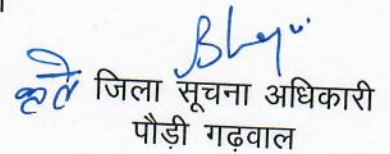 कृते जिला सूचना अधिकारी
पौड़ी गढ़वाल